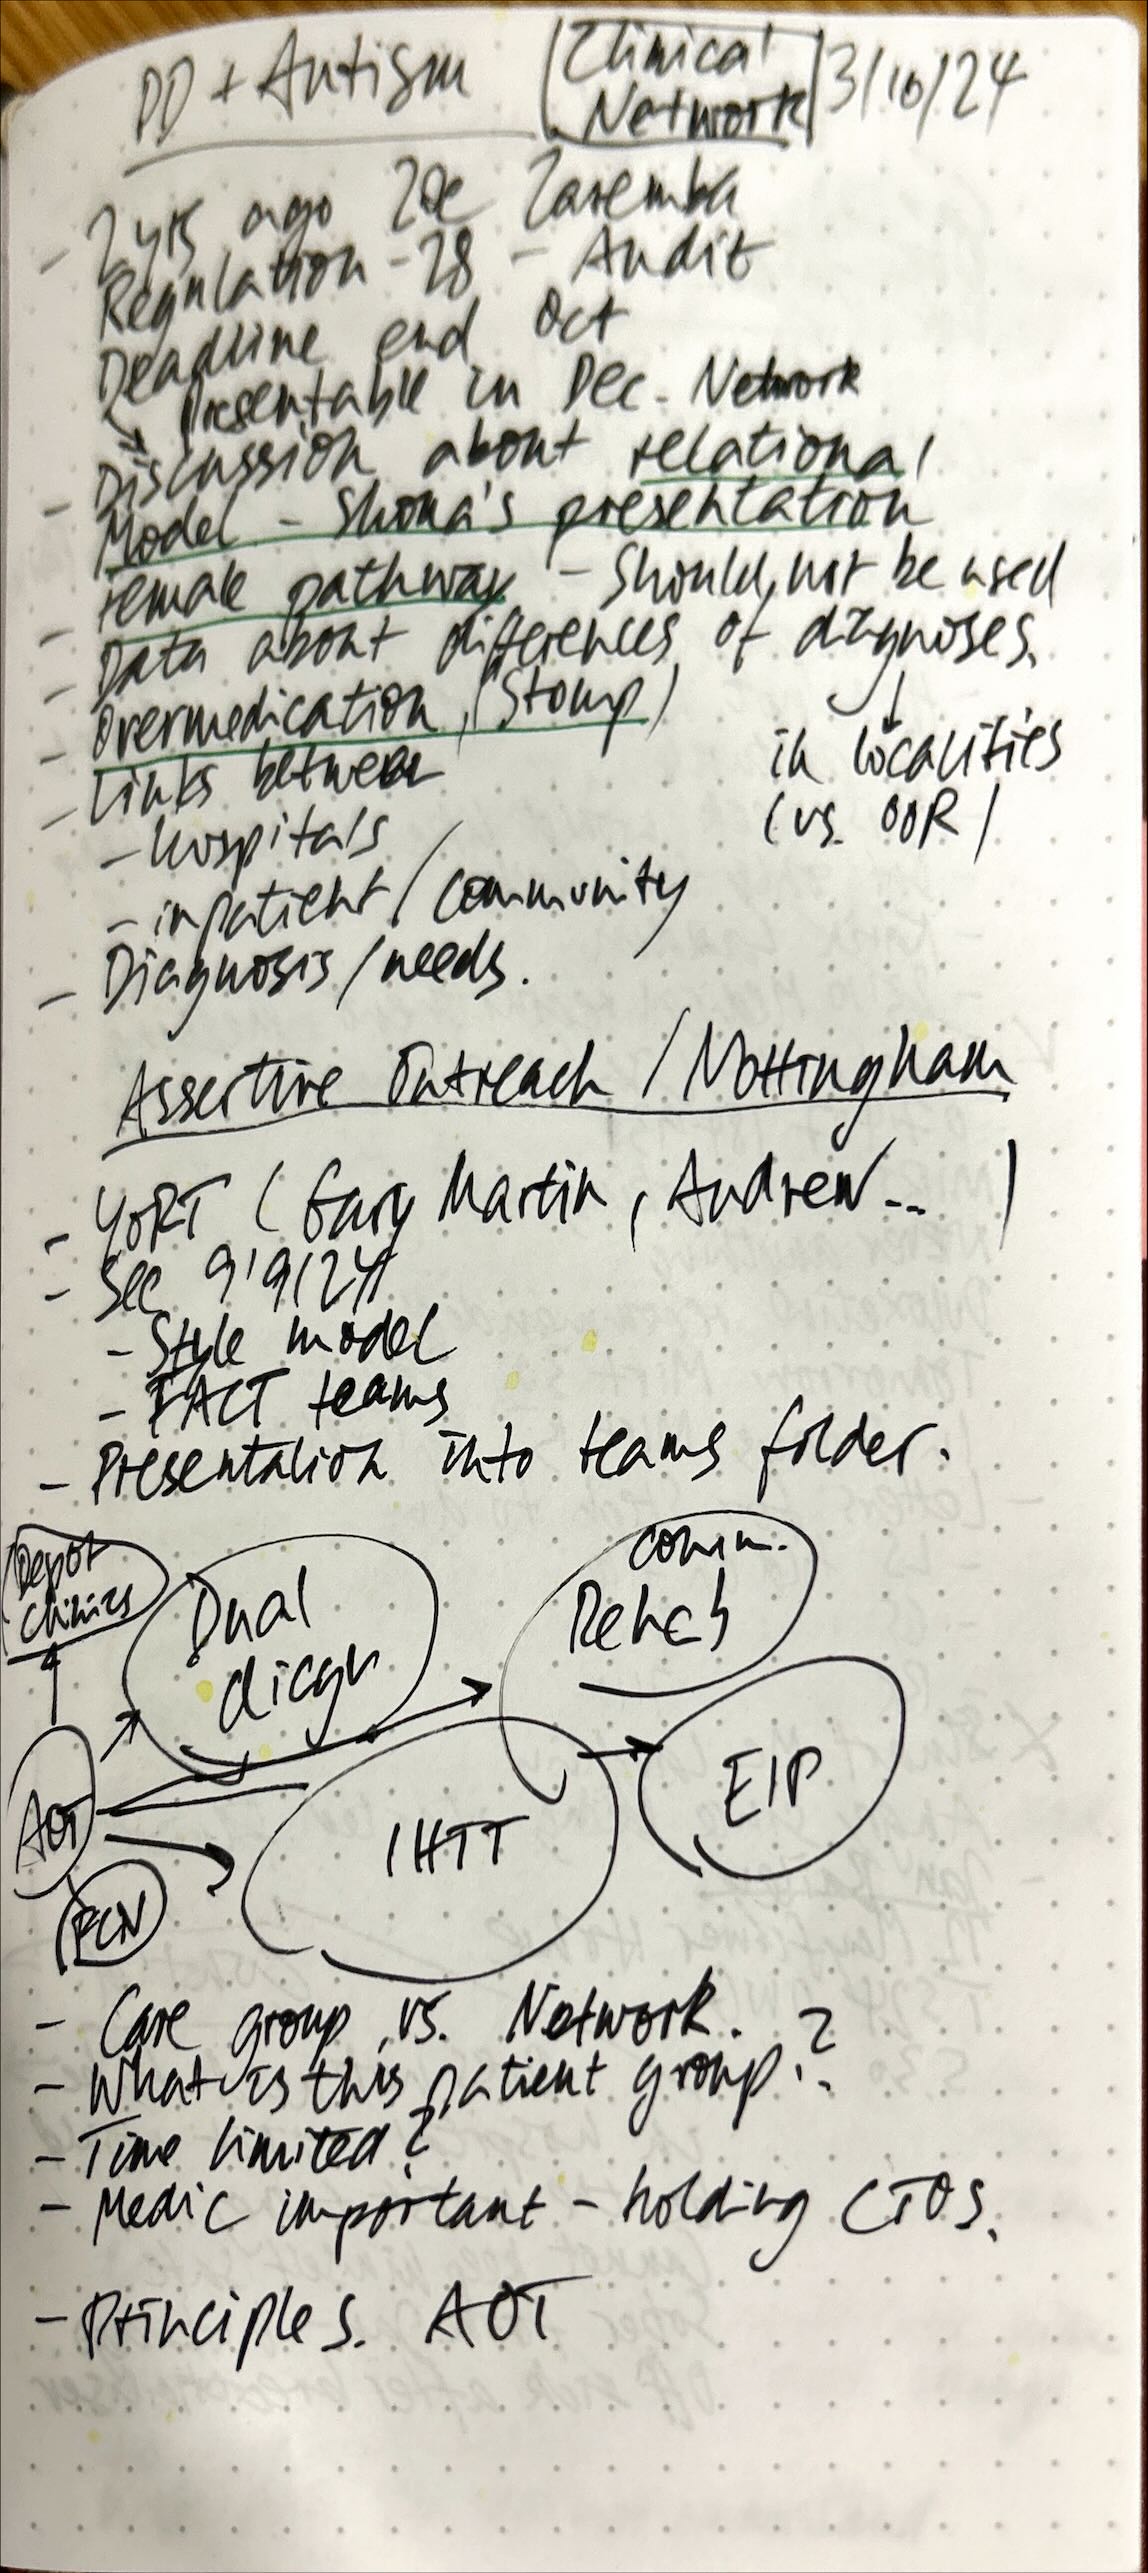 PD + Autism
Clinical
Network
3/10/24
- 2 yrs ago Zoe Zaremba
Regulation - 28 - Audit
Deadline end Oct
↳ Presentable in Dec. Network
- Discussion about relational
Model - Shona's presentation
- female pathway - should not be used
- Data about differences of diagnoses.
↓
in localities
(vs. OOR)
- Overmedication (Stomp)
- Links between
- hospitals
- inpatient / community
- Diagnosis / needs.
Assertive Outreach / Nottingham
- YORT (Gary Martin, Andrew... )
- See 9/9/24
- Style model
- FACT teams
- Presentation into teams folder.
Depot
clinics
Dual
diagn
comm.
Rehab
AOT
IHTT
EIP
PCN
- Care group vs. Network.
- What is this patient group?
- Time limited?
- Medic important - holding CTOS.
- Principles. AOT